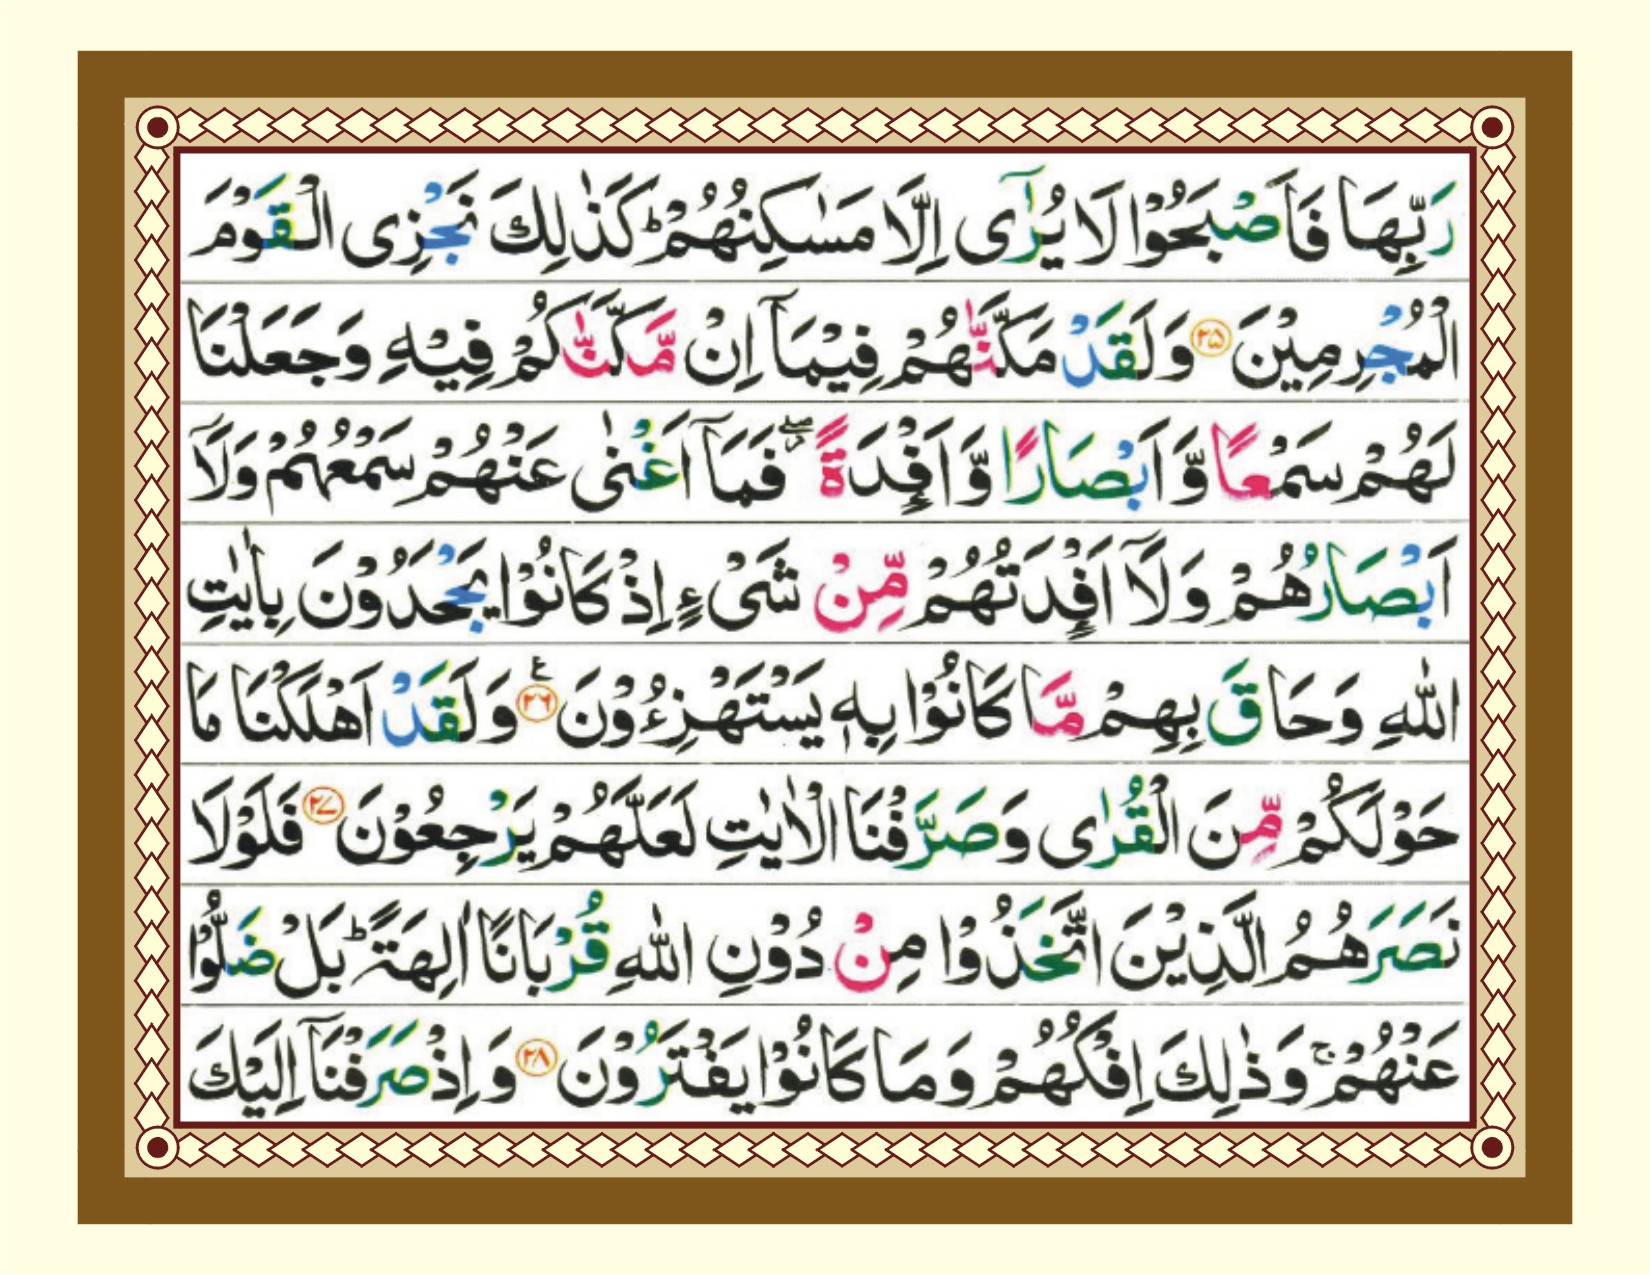 رَبِّهَا فَاَصْبَحُوْا لَا يُرٰۤى اِلَّا مَسٰكِنُهُمْ ؕ كَذٰلِكَ نَجْزِى الْقَوْمَ
الْمُجْرِمِيْنَ ۲۵ وَلَقَدْ مَكَّنّٰهُمْ فِيْمَاۤ اِنْ مَّكَّنّٰكُمْ فِيْهِ وَجَعَلْنَا
لَهُمْ سَمْعًا وَّاَبْصَارًا وَّاَفْـِٕدَةً ۖ فَمَاۤ اَغْنٰى عَنْهُمْ سَمْعُهُمْ وَلَاۤ
اَبْصَارُهُمْ وَلَاۤ اَفْـِٕدَتُهُمْ مِّنْ شَىْءٍ اِذْ كَانُوْا يَجْحَدُوْنَ بِاٰيٰتِ
اللّٰهِ وَحَاقَ بِهِمْ مَّا كَانُوْا بِهٖ يَسْتَهْزِءُوْنَ ۲۶ ع وَلَقَدْ اَهْلَكْنَا مَا
حَوْلَكُمْ مِّنَ الْقُرٰى وَصَرَّفْنَا الْاٰيٰتِ لَعَلَّهُمْ يَرْجِعُوْنَ ۲۷ فَلَوْلَا
نَصَرَهُمُ الَّذِيْنَ اتَّخَذُوْا مِنْ دُوْنِ اللّٰهِ قُرْبَانًا اٰلِهَةً ؕ بَلْ ضَلُّوْا
عَنْهُمْ ۚ وَذٰلِكَ اِفْكُهُمْ وَمَا كَانُوْا يَفْتَرُوْنَ ۲۸ وَاِذْ صَرَفْنَاۤ اِلَيْكَ